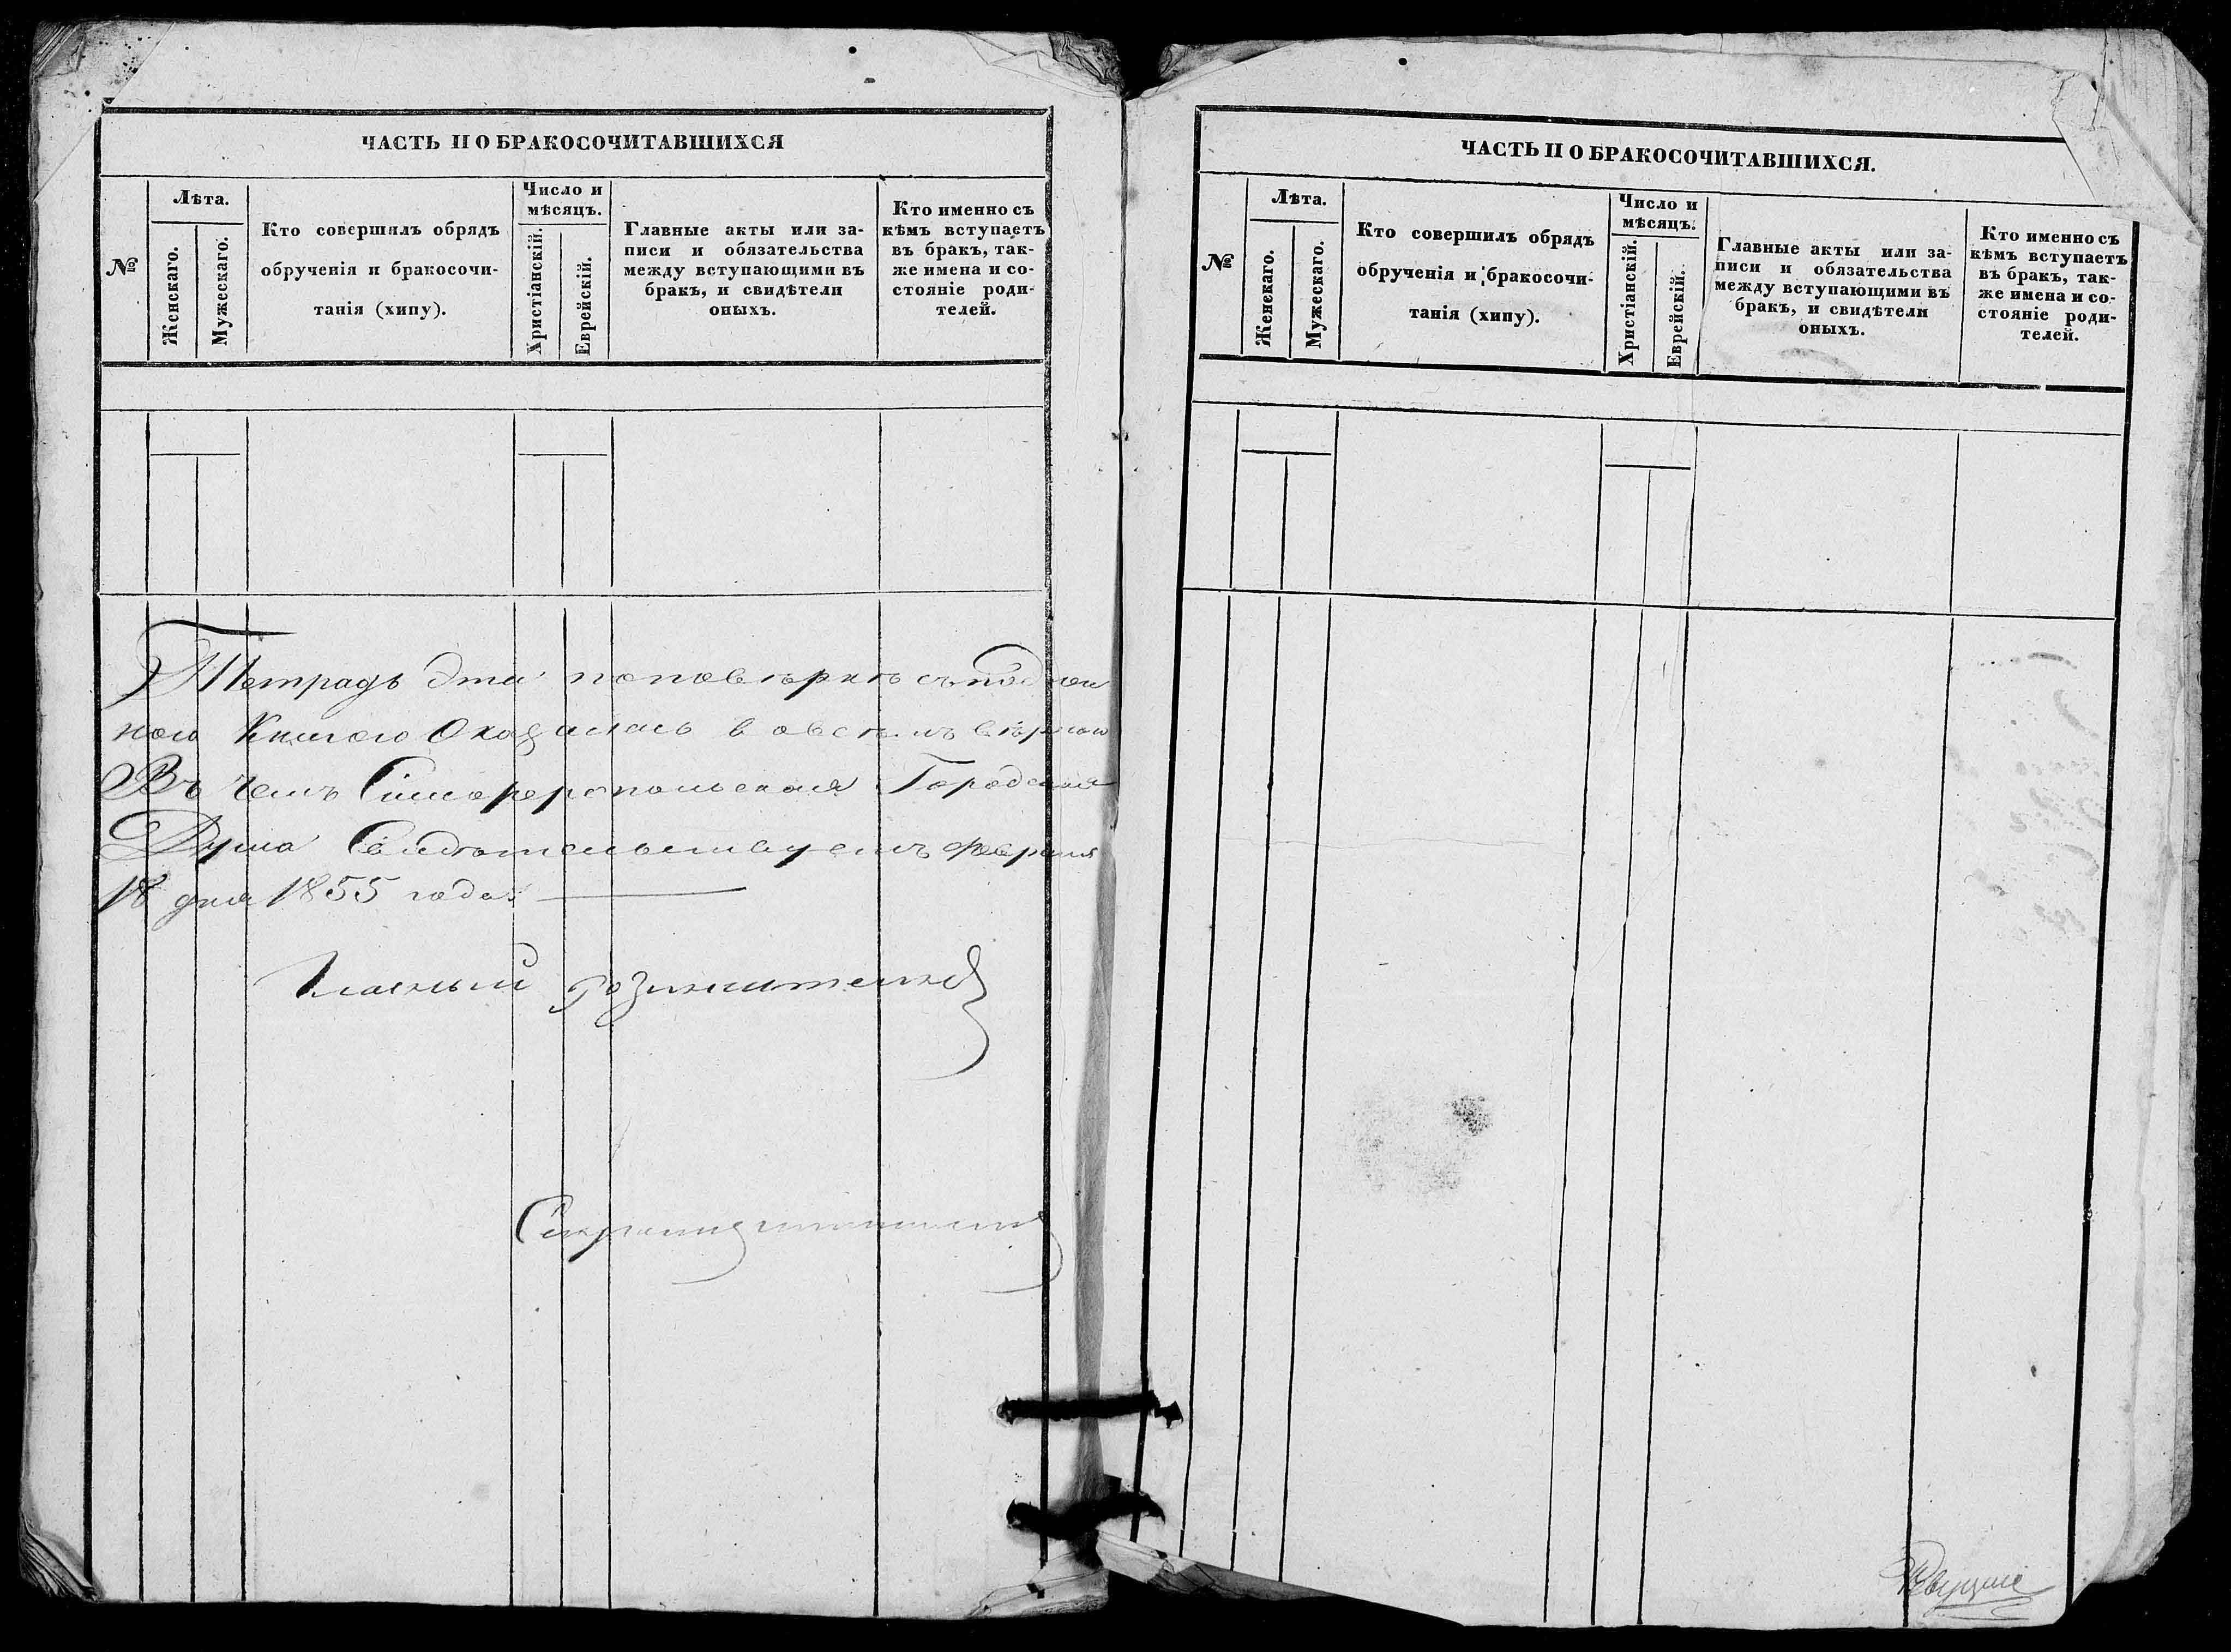 ЧАСТЬ II О БРАКОСОЧИТАВШИХСЯ
№
Лѣта.
Женскаго.
Мужескаго.
Кто совершилъ обрядъ
обрученія и бракосочи-
танія (хипу).
Число и
мѣсяцъ.
Христіанскій.
Еврейскій.
Главные акты или за-
писи и обязательства
между вступающими въ
бракъ, и свидѣтели
оныхъ.
Кто именно съ
кѣмъ вступаетъ
въ бракъ, так-
же имена и со-
стояніе роди-
телей.
Тетрадь эта по повѣркѣ съ подлин
ною Книгою Оказалась во всемъ вѣрною
Въ чемъ Симферопольская Городская
Дума Свидѣтельствуетъ февраля
18 дня 1855 года
Гласный
ЧАСТЬ II О БРАКОСОЧИТАВШИХСЯ.
№
Лѣта.
Женскаго.
Мужескаго.
Кто совершилъ обрядъ
обрученія и бракосочи-
танія (хипу).
Число и
мѣсяцъ.
Христіанскій.
Еврейскій.
Главные акты или за-
писи и обязательства
между вступающими въ
бракъ, и свидѣтели
оныхъ.
Кто именно съ
кѣмъ вступаетъ
въ бракъ, так-
же имена и со-
стояніе роди-
телей.